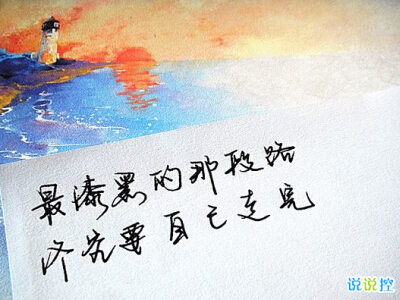 最漆黑的那段路
终究要自己走完
说说控